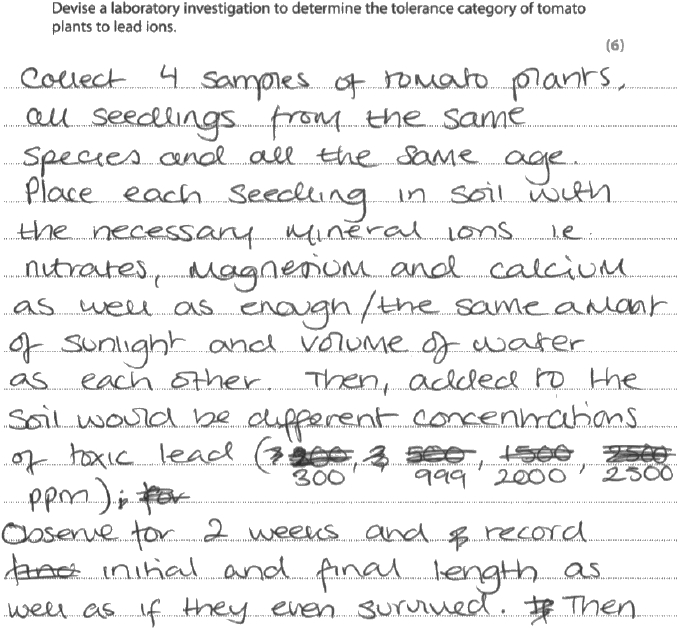 Devise a laboratory investigation to determine the tolerance category of tomato
plants to lead ions.
(6)
Collect 4 samples of tomato plants,
all seedlings from the same
species and all the same age.
Place each seedling in soil with
the necessary mineral ions i.e.
nitrates, magnesium and calcium
as well as enough/the same amont
of sunlight and volume of water
as each other. Then, added to the
soil would be different concentrations
of toxic lead (300, 999, 2000, 2500
ppm);
Observe for 2 weeks and record
initial and final length as
well as if they even survived. Then